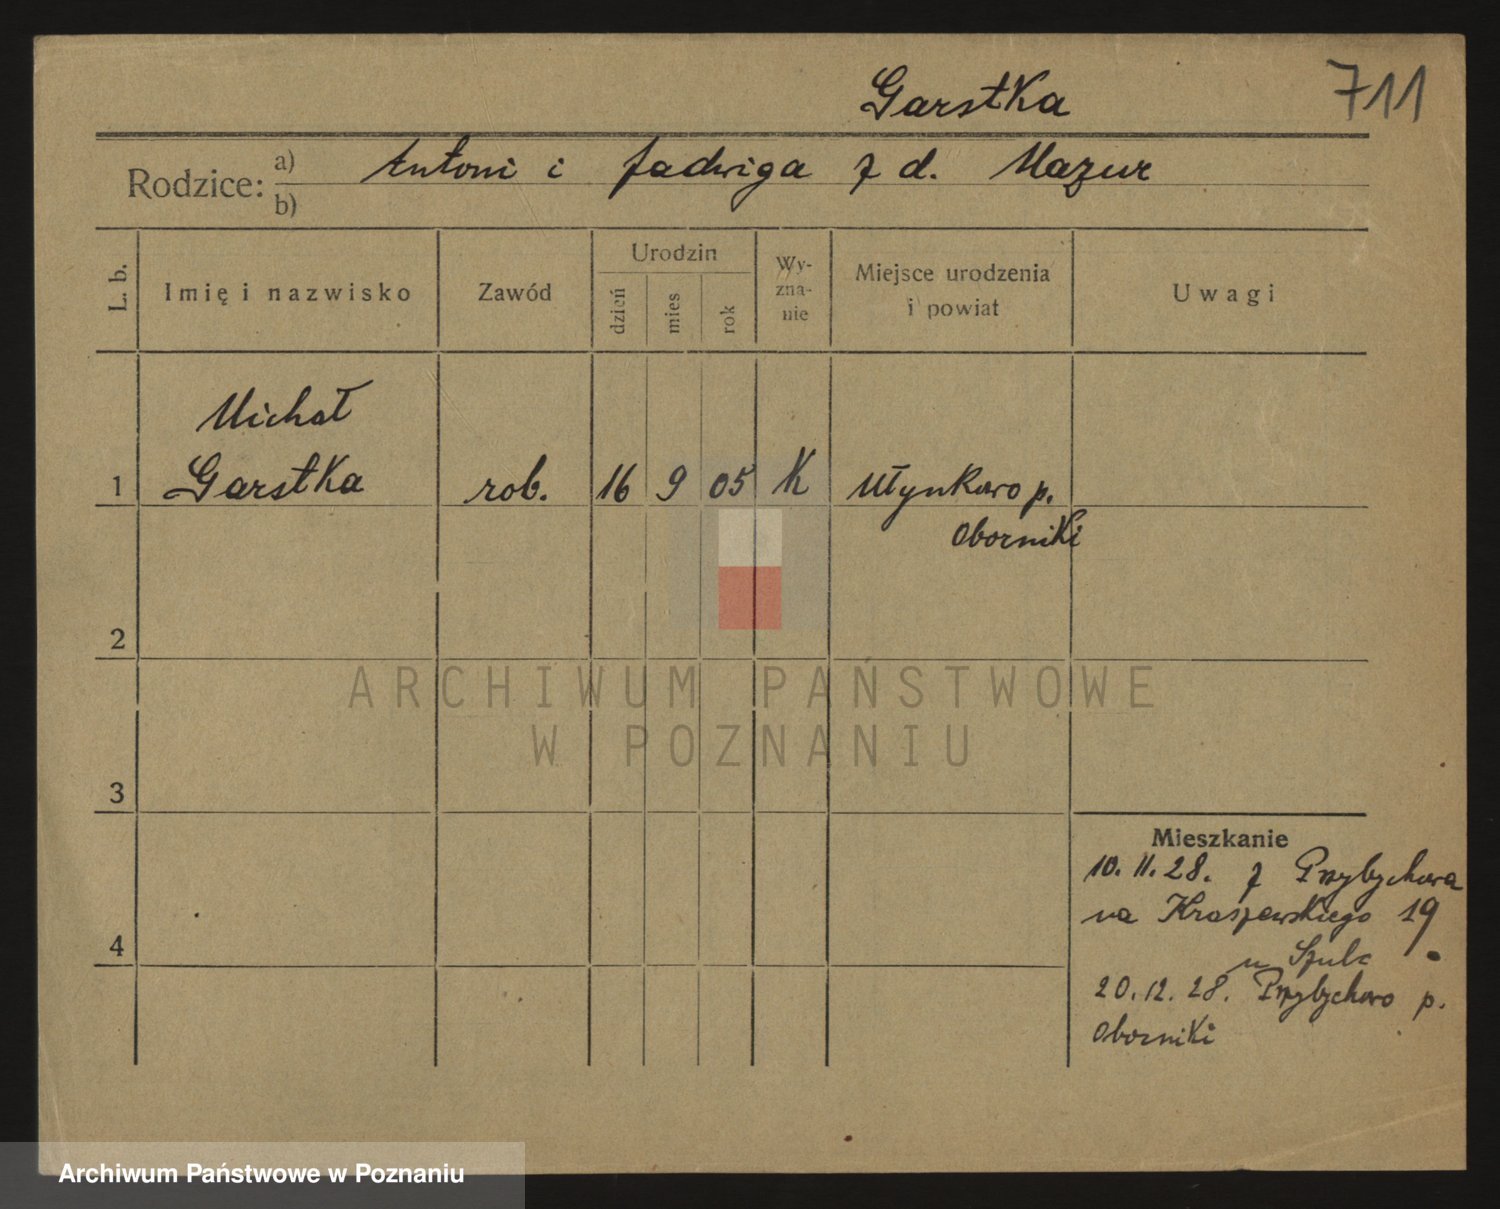 Garstka 711
Rodzice: a) Antoni i Jadwiga z d. Mazur
b)
L. b. Imię i nazwisko Zawód Urodzin dzień mies rok Wy-zna-nie Miejsce urodzenia i powiat Uwagi
Michał
1 Garstka rob. 16 9 05 K Młynkowo p.
Oborniki
2
ARCHIWUM PAŃSTWOWE
W POZNANIU
3
Mieszkanie
10. 11. 28. z Przybychowa
na Kraszewskiego 19
4
u Szulc
20. 12. 28. Przybychowo p.
Oborniki
Archiwum Państwowe w Poznaniu